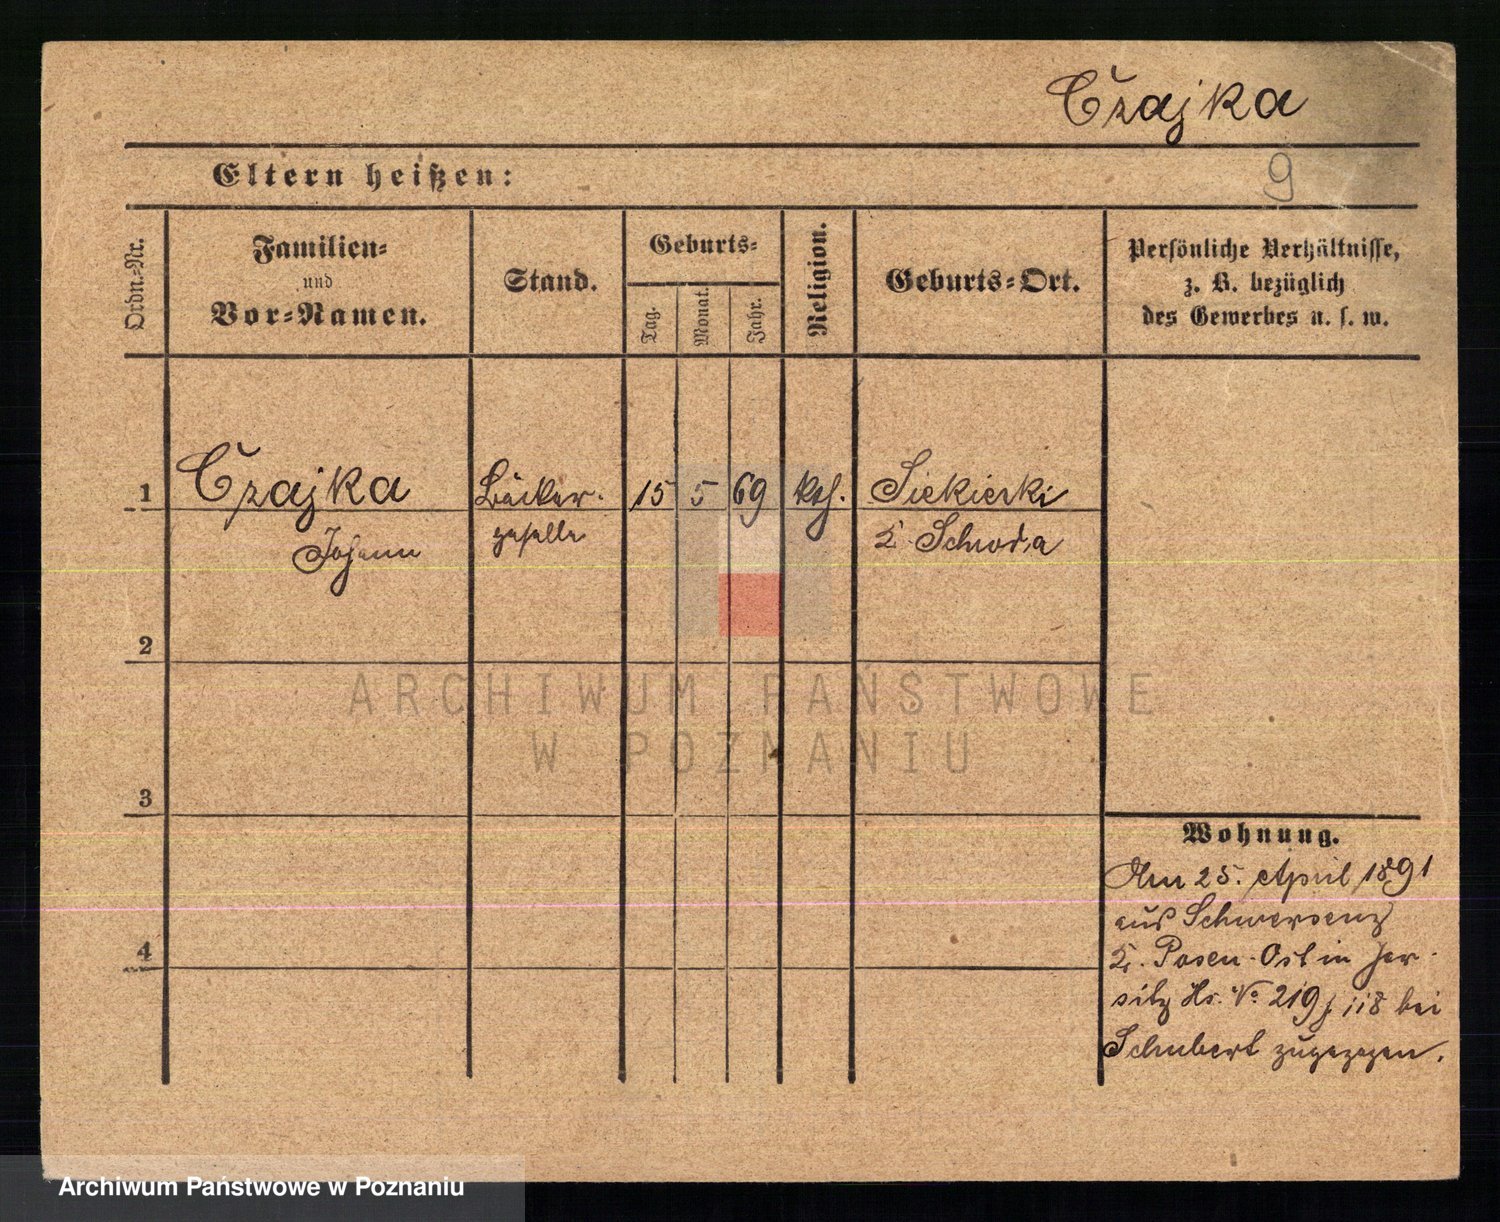 Czajka
Eltern heißen:
9
Ordn.-Nr.
Familien-
und
Vor-Namen.
Stand.
Geburts-
Tag.
Monat.
Jahr.
Religion.
Geburts-Ort.
Persönliche Verhältnisse,
z. B. bezüglich
des Gewerbes u. s. w.
1
Czajka
Johann
Bäcker-
geselle
15
5
69
kth.
Siekierki
Schroda
2
ARCHIWUM PAŃSTWOWE
W POZNANIU
3
4
Wohnung.
Am 25. April 1891
aus Schwersenz
Posen-Ost in Jer-
sitz Hs. No 219 bei
Schubert zugezogen.
Archiwum Państwowe w Poznaniu